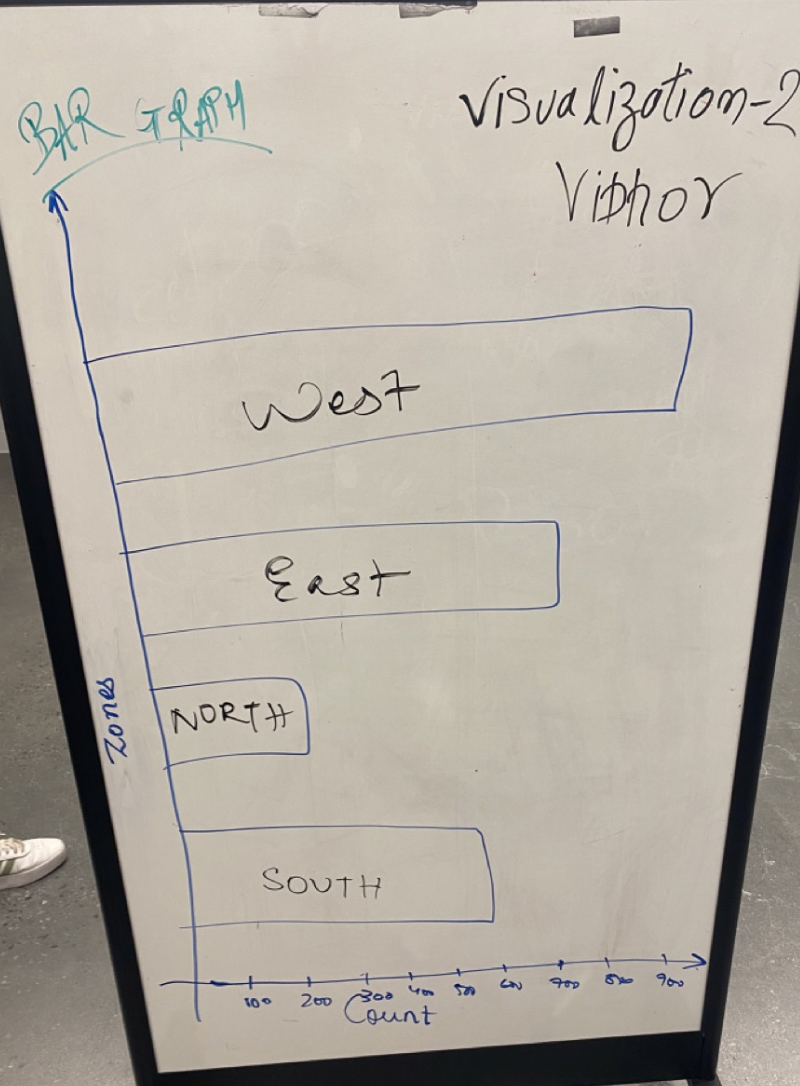 BAR GRAPH
Visualization-2
Vibhor
West
East
NORTH
SOUTH
Zones
100 200 300 400 500 600 700 800 900
Count